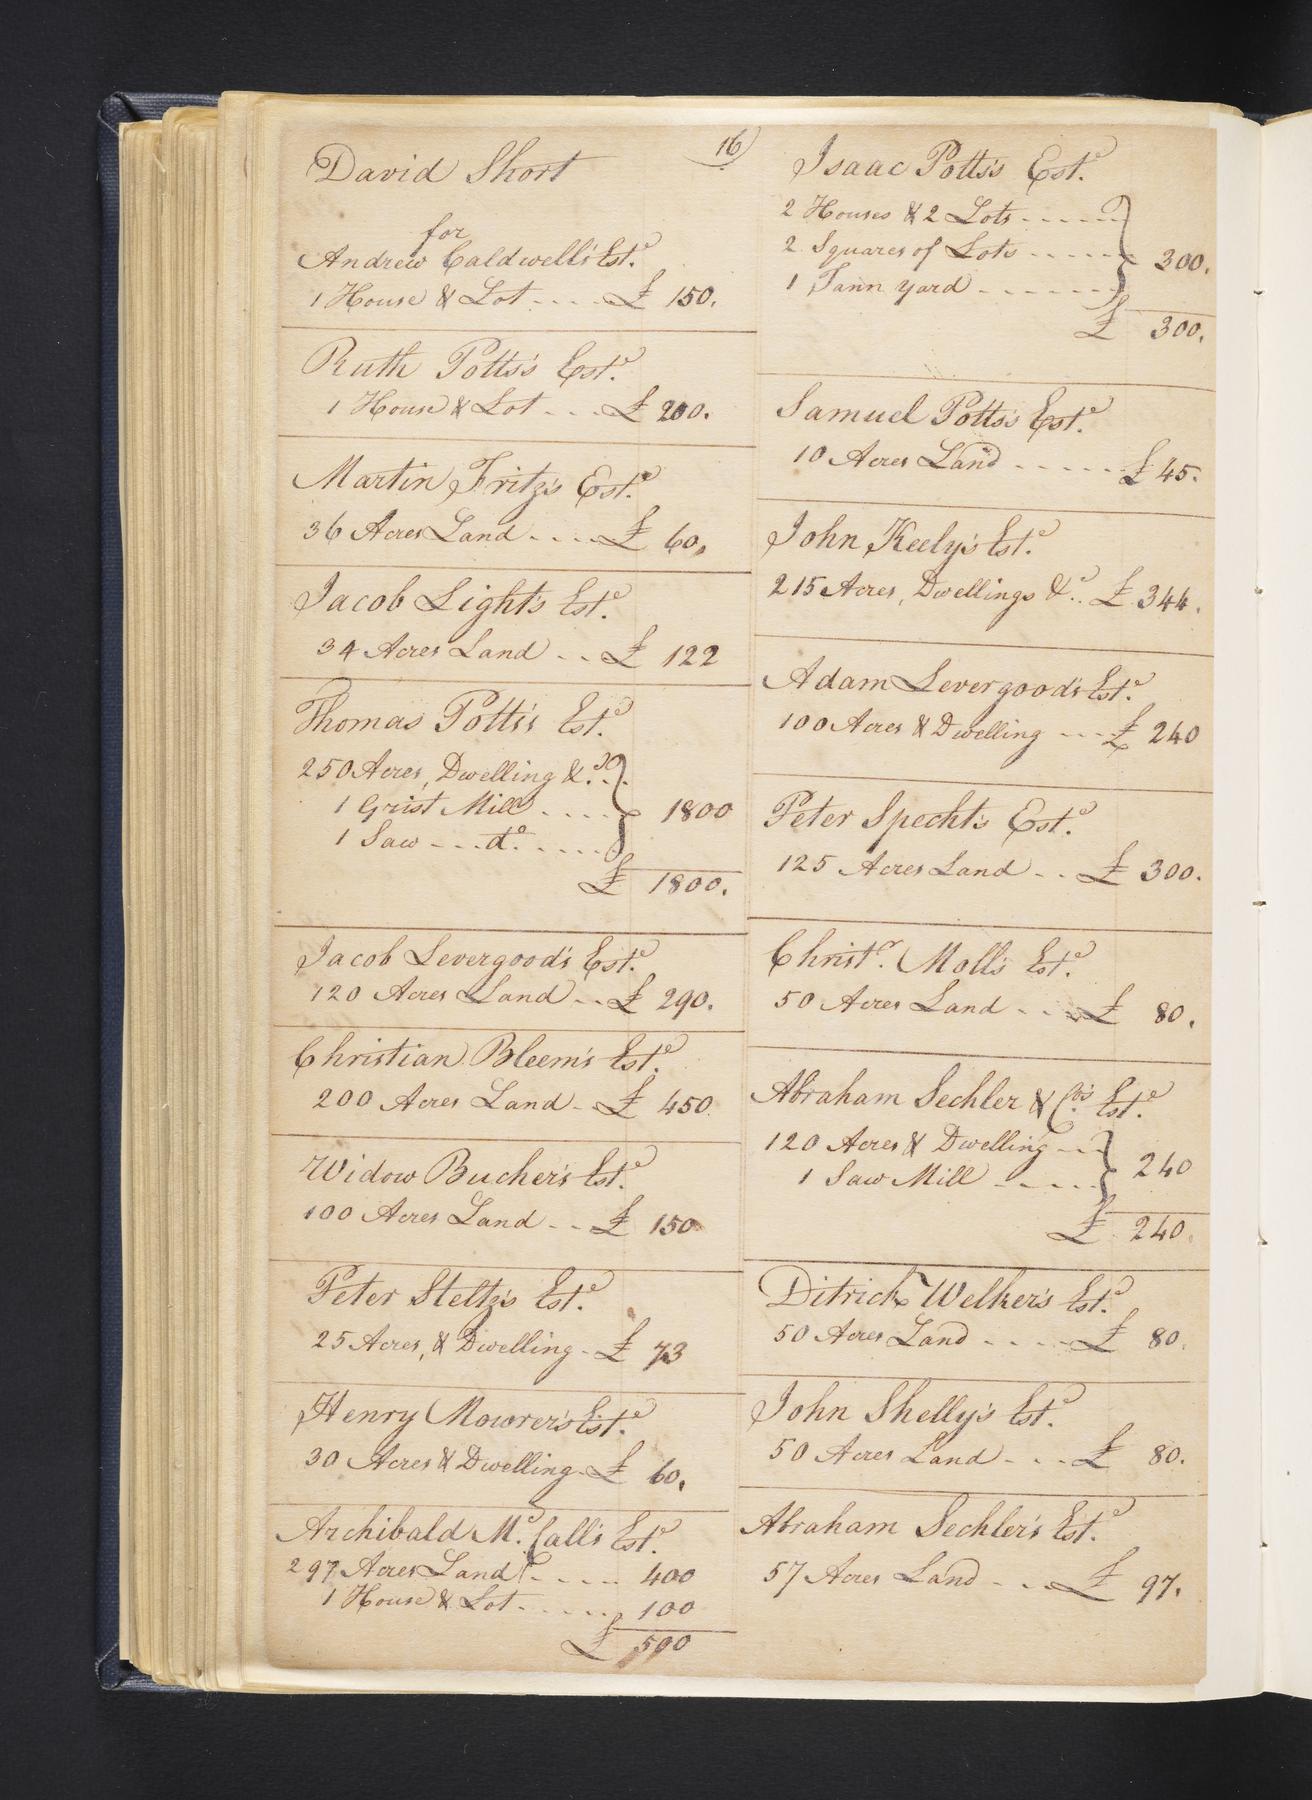 16
David Short
for
Andrew Caldwell's Est.e
1 House & Lot .... £ 150.
Ruth Potts's Est.e
1 House & Lot ... £ 200.
Martin Fritz's Est.e
36 Acres Land .... £ 60.
Jacob Light's Est.e
34 Acres Land .. £ 122
Thomas Potts's Est.e
250 Acres, Dwelling &.c
1 Grist Mill ..... 1800
1 Saw ... do. ....
£ 1800.
Jacob Levergood's Est.e
120 Acres Land .. £ 290.
Christian Bleem's Est.e
200 Acres Land - £ 450.
Widow Bucher's Est.e
100 Acres Land .. £ 150
Peter Steltz's Est.e
25 Acres, & Dwelling - £ 73
Henry Mowrer's Est.e
30 Acres & Dwelling - £ 60.
Archibald Mc.Call's Est.e
297 Acres Land .... 400
1 House & Lot ..... 100
£ 500
Isaac Potts's Est.e
2 Houses & 2 Lots ......
2 Squares of Lots ...... 300.
1 Tann yard ......
£ 300.
Samuel Potts's Est.e
10 Acres Land ...... £ 45.
John Keely's Est.e
215 Acres, Dwellings &c.. £ 344.
Adam Levergood's Est.e
100 Acres & Dwelling ... £ 240
Peter Specht's Est.e
125 Acres Land .. £ 300.
Christr. Moll's Est.e
50 Acres Land ... £ 80.
Abraham Sechler & Co's Est.e
120 Acres & Dwelling ... 240
1 Saw Mill .....
£ 240.
Ditrick Welker's Est.e
50 Acres Land .... £ 80.
John Shelly's Est.e
50 Acres Land ... £ 80.
Abraham Sechler's Est.e
57 Acres Land ... £ 97.